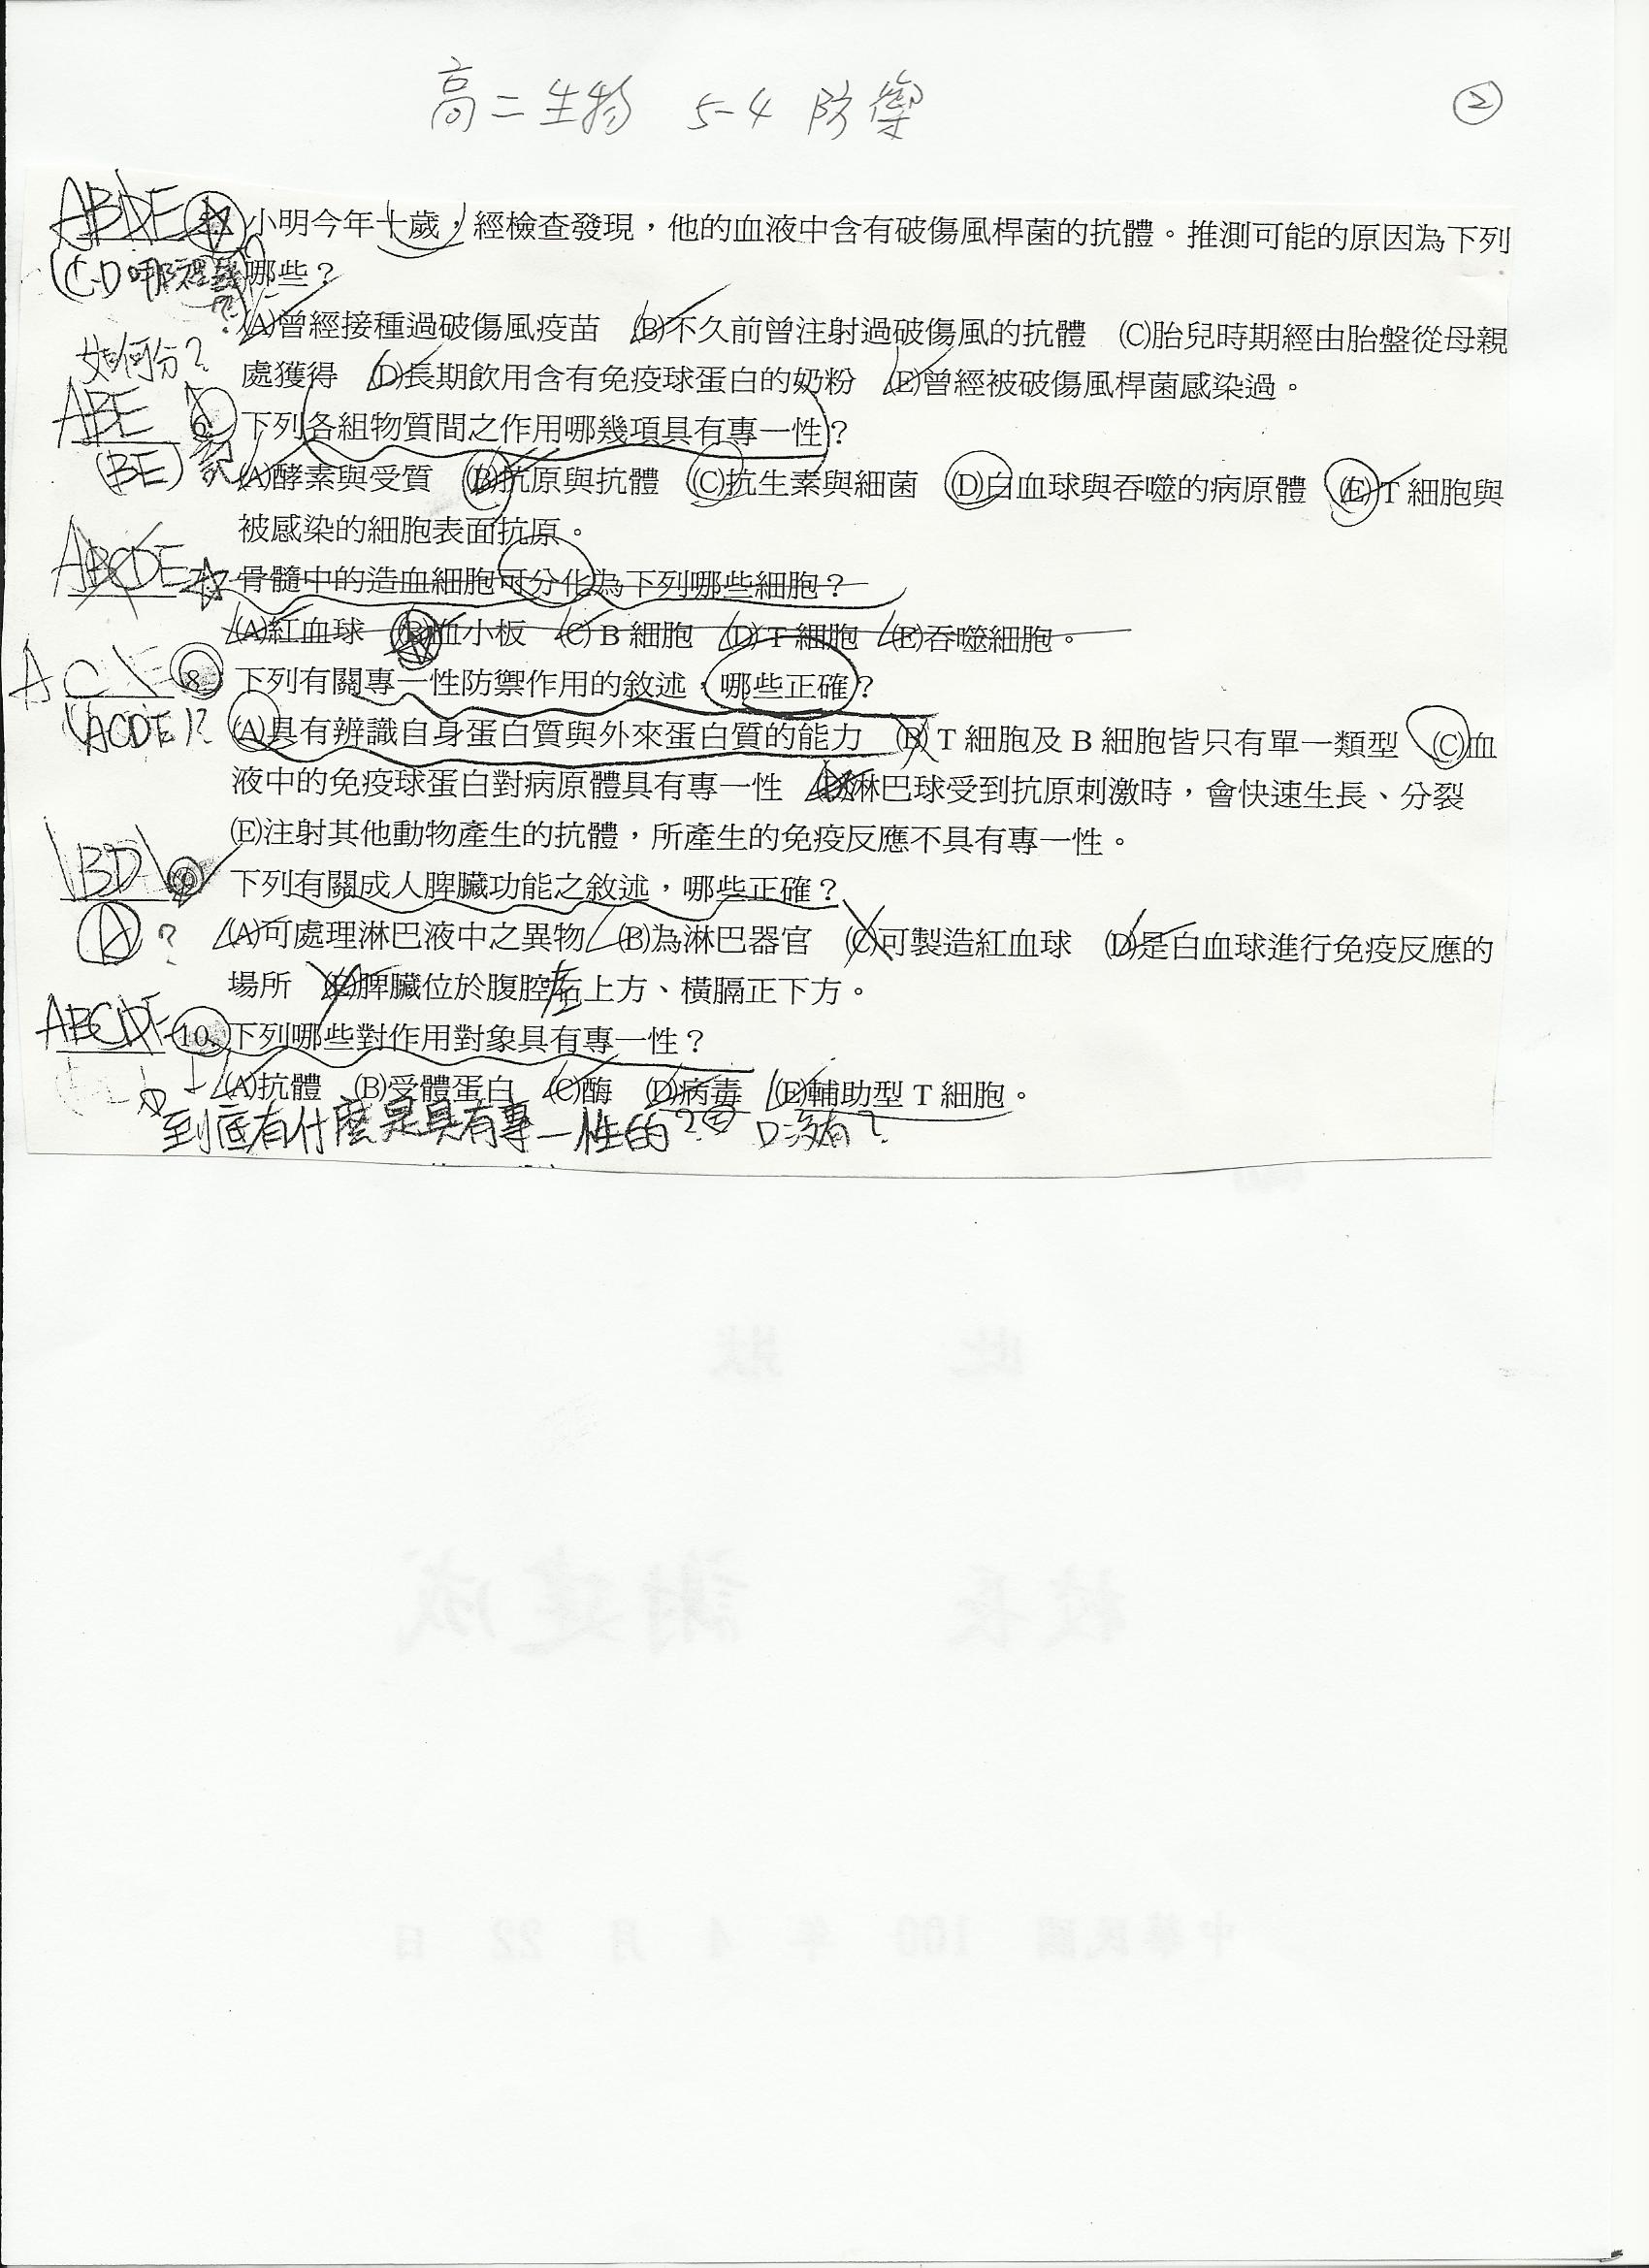 高二生物 5-4 防禦 ②
ABDE 小明今年十歲，經檢查發現，他的血液中含有破傷風桿菌的抗體。推測可能的原因為下列
(C.D 哪裡 哪些？
(A)曾經接種過破傷風疫苗 (B)不久前曾注射過破傷風的抗體 (C)胎兒時期經由胎盤從母親
如何分？ 處獲得 (D)長期飲用含有免疫球蛋白的奶粉 (E)曾經被破傷風桿菌感染過。
ABE 6. 下列各組物質間之作用哪幾項具有專一性？
(BE) (A)酵素與受質 (B)抗原與抗體 (C)抗生素與細菌 (D)白血球與吞噬的病原體 (E)T 細胞與
被感染的細胞表面抗原。
ABCDE 7. 骨髓中的造血細胞可分化為下列哪些細胞？
(A)紅血球 (B)血小板 (C)B 細胞 (D)T 細胞 (E)吞噬細胞。
AC 8. 下列有關專一性防禦作用的敘述，哪些正確？
(ACDE)？ (A)具有辨識自身蛋白質與外來蛋白質的能力 (B)T 細胞及 B 細胞皆只有單一類型 (C)血
液中的免疫球蛋白對病原體具有專一性 (D)淋巴球受到抗原刺激時，會快速生長、分裂
(E)注射其他動物產生的抗體，所產生的免疫反應不具有專一性。
BD 9. 下列有關成人脾臟功能之敘述，哪些正確？
A？ (A)可處理淋巴液中之異物 (B)為淋巴器官 (C)可製造紅血球 (D)是白血球進行免疫反應的
場所 (E)脾臟位於腹腔右上方、橫膈正下方。
左
ABCDE 10. 下列哪些對作用對象具有專一性？
(A)抗體 (B)受體蛋白 (C)酶 (D)病毒 (E)輔助型 T 細胞。
到底有什麼是具有專一性的？ D沒有？
此 狀
校長 謝建成
中華民國 100 年 4 月 22 日